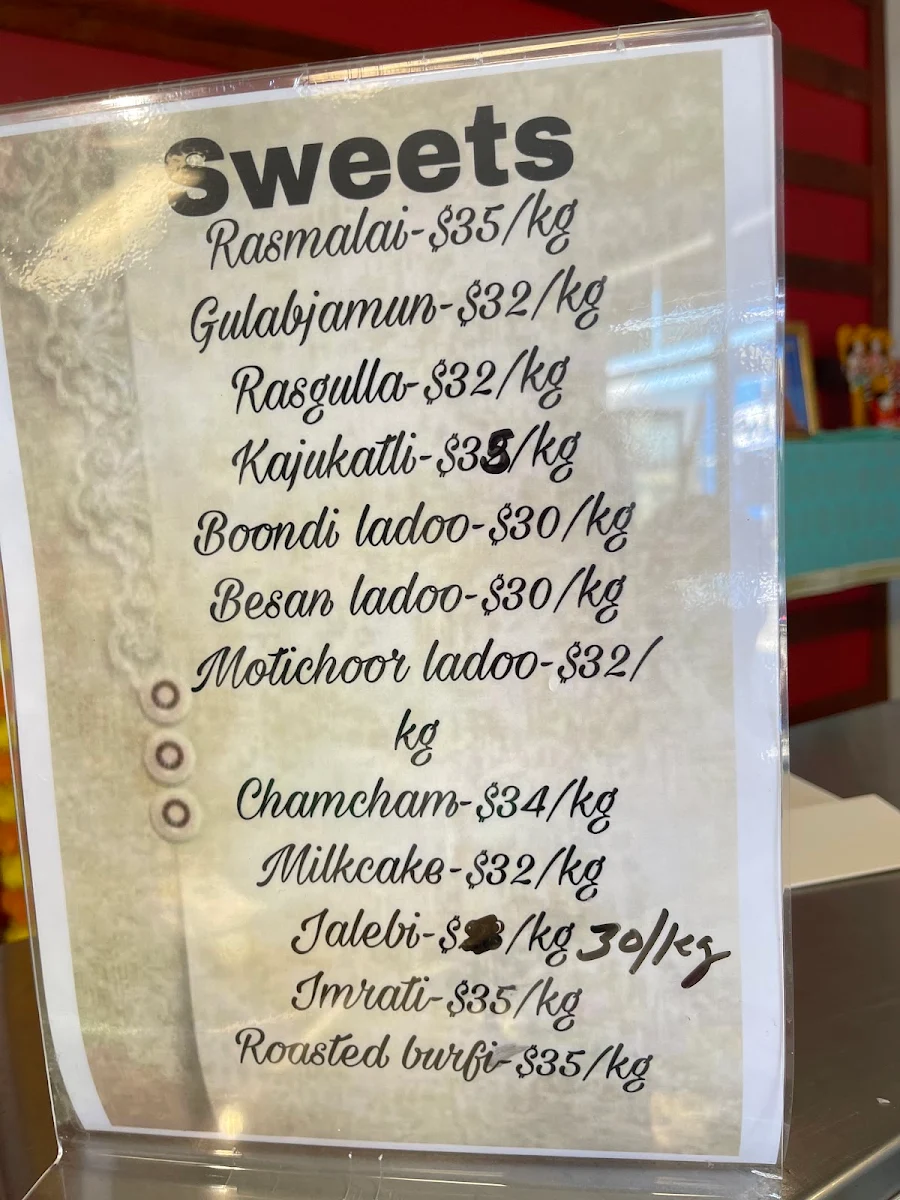 Sweets
Rasmalai-$35/kg
Gulabjamun-$32/kg
Rasgulla-$32/kg
Kajukatli-$38/kg
Boondi ladoo-$30/kg
Besan ladoo-$30/kg
Motichoor ladoo-$32/
kg
Chamcham-$34/kg
Milkcake-$32/kg
Jalebi-$ /kg 30/kg
Imrati-$35/kg
Roasted burfi-$35/kg